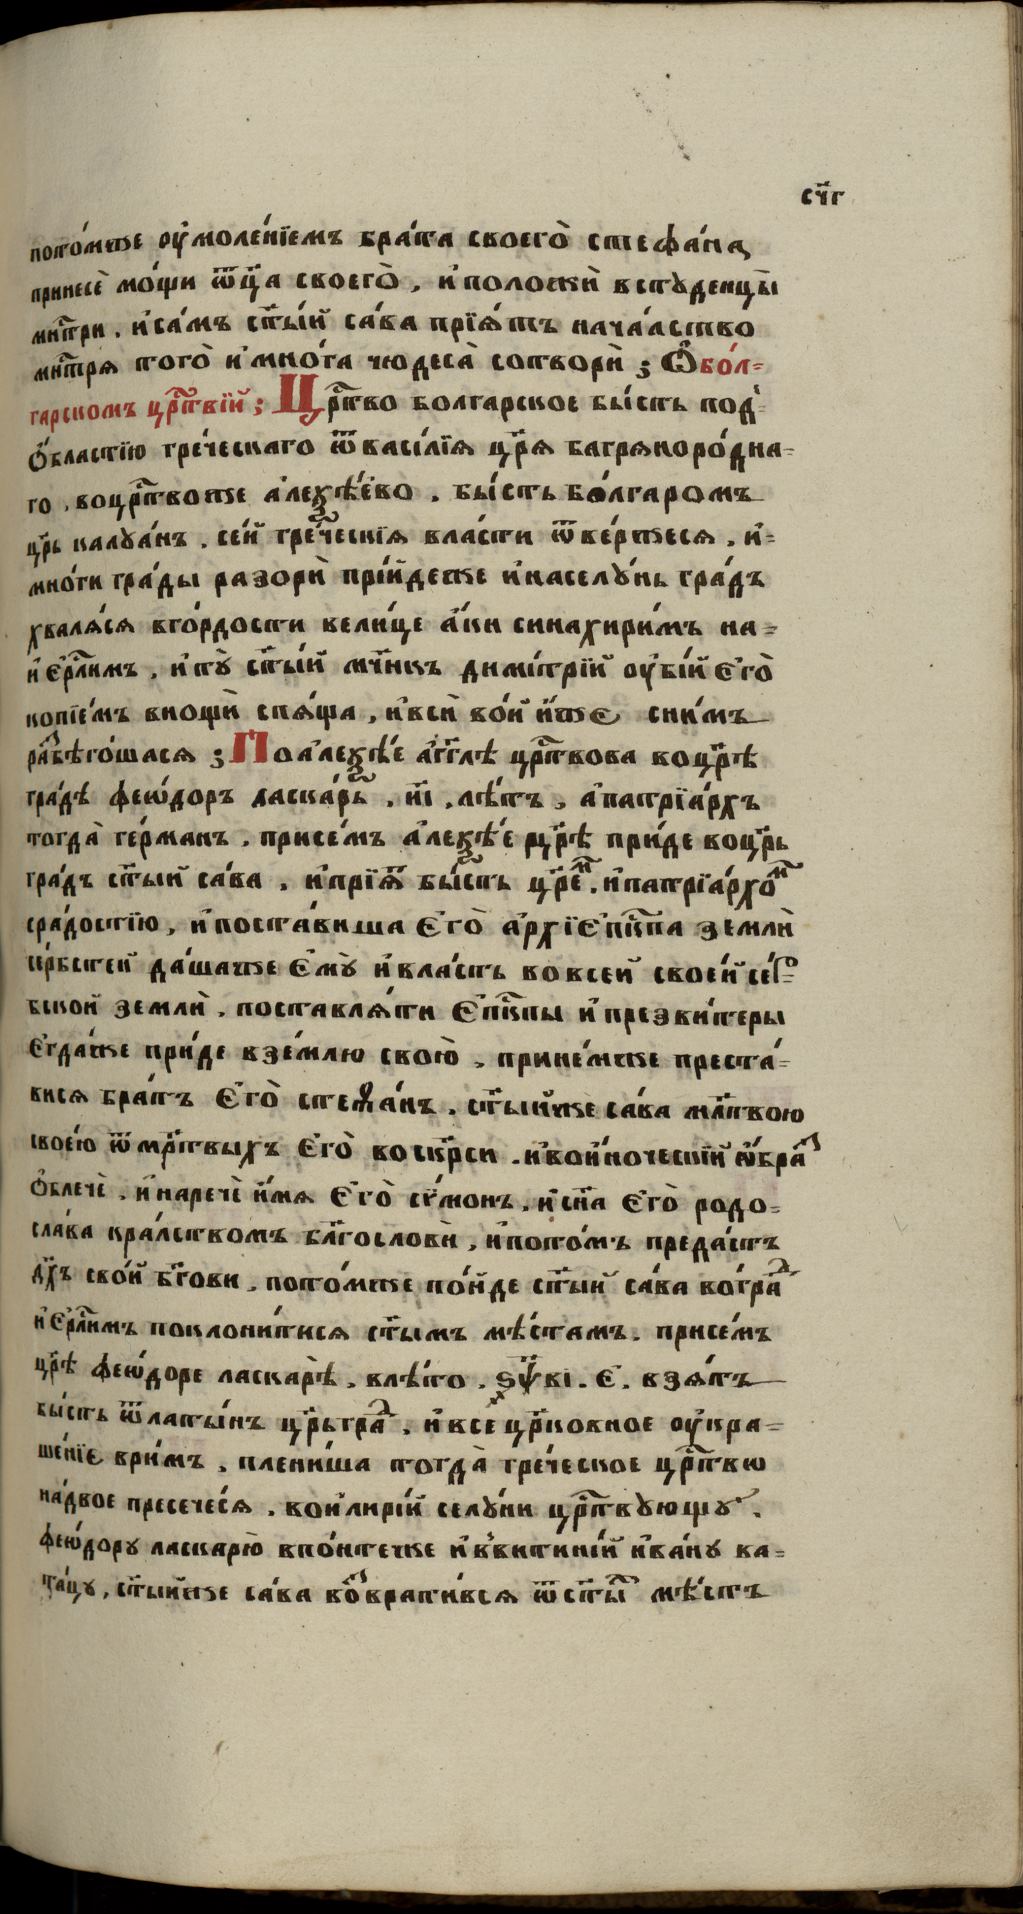 сч҃г
пото́мже ᲂу҆моле́нїемъ бра́та своего̀ стефа́на,
принесѐ мо́щи ѿц҃а своего̀, и҆положѝ встꙋденцы̀
мн҃три. и҆са́мъ ст҃ы́й са́ва прїѧ́тъ нача́лство
мн҃трѧ того̀ и҆мно́га чюдеса̀ сотворѝ ; Ѡ҆бо́л-
гарскомъ цр҃твїй ; Цр҃тво болгарское бы́сть под̾
ѻ҆́бластїю гре́ческаго ѿваси́лїѧ цр҃ѧ багрѧноро́дна-
го. воцр҃твоже а҆леѯѣ́ево. бы́сть бо́лгаромъ
цр҃ь калꙋа́нъ. се́й гре́ческїѧ вла́сти ѿве́ржесѧ. и҆-
мно́ги гра́ды разорѝ прїи́детже и҆населꙋ́нь гра́дъ
хвалѧ́сѧ вго́рдости вели́це а҆́ки синахири́мъ на-
и҆є҆рⷭ҇ли́мъ. и҆тꙋ̀ ст҃ы́й мч҃нкъ дими́трїй ᲂу҆бі́й є҆го̀
копїе́мъ внощѝ спѧ́ща, и҆всѝ во́й и҆́же сни́мъ
раⷥбѣго́шасѧ ; Поа҆леѯѣ́е а҆́гг҃лѣ цр҃твова воцр҃ѣ
гра́дѣ феѡ́доръ ласка́рь. и҃і. лѣ́тъ. а҆патрїа́рхъ
тогда̀ ге́рманъ. присе́мъ а҆леѯѣ́е цр҃ѣ прі́де воцр҃ь
гра́дъ ст҃ый са́ва. и҆прїѧ́ⷮ бы́сть цр҃еⷨ. и҆патрїа́рхоⷨ
сра́достїю, и҆поста́виша є҆го̀ а҆рхїє҆пⷭ҇кпа землѝ
се́рбстей да́шаже є҆мꙋ̀ и҆вла́сть вовсей свое́й се́рⷠ-
бской землѝ. поставлѧ́ти є҆пⷭ҇кпы и҆презвитеры
є҆гда́же прі́де взе́млю свою̀. прине́мже преста́-
висѧ бра́тъ є҆го̀ стеѳа́нъ. ст҃ы́йже са́ва мл҃твою
свое́ю ѿме́ртвыхъ є҆го̀ воскр҃си. и҆вои́ноческїй ѡ҆́браⷥ
ѻ҆блечѐ. и҆наречѐ и҆́мѧ є҆го̀ сѵ́монъ. и҆сн҃а є҆го̀ родо-
сла́ва кра́лствомъ бл҃гословѝ, и҆пото́мъ преда́стъ
дх҃ъ сво́й бг҃ови. пото́мже по́йде ст҃ы́й са́ва вогра́ⷣ
и҆є҆рⷭ҇ли́мъ поклони́тисѧ ст҃ымъ мѣ́стамъ. присе́мъ
цр҃ѣ феѡ́доре ласка́рѣ. влѣ́то. ҂ѕѱ҃кі. є҃. взѧ́тъ
бы́сть ѿлаты́нъ цр҃ьграⷣ. и҆все цр҃ковное ᲂу҆кра-
ше́нїе ври́мъ. плени́ша тогда̀ гре́ческое цр҃твѡ
на́двое пресече́сѧ. вои҆лирі́й селꙋни цр҃твꙋющꙋ.
феѡ́дорꙋ ласка́рю впо́нтеже и҆ввитині́й и҆ва́нꙋ ва-
та́цꙋ. ст҃ы́йже са́ва воⷥврати́всѧ ѿст҃ыⷯ мѣ́стъ